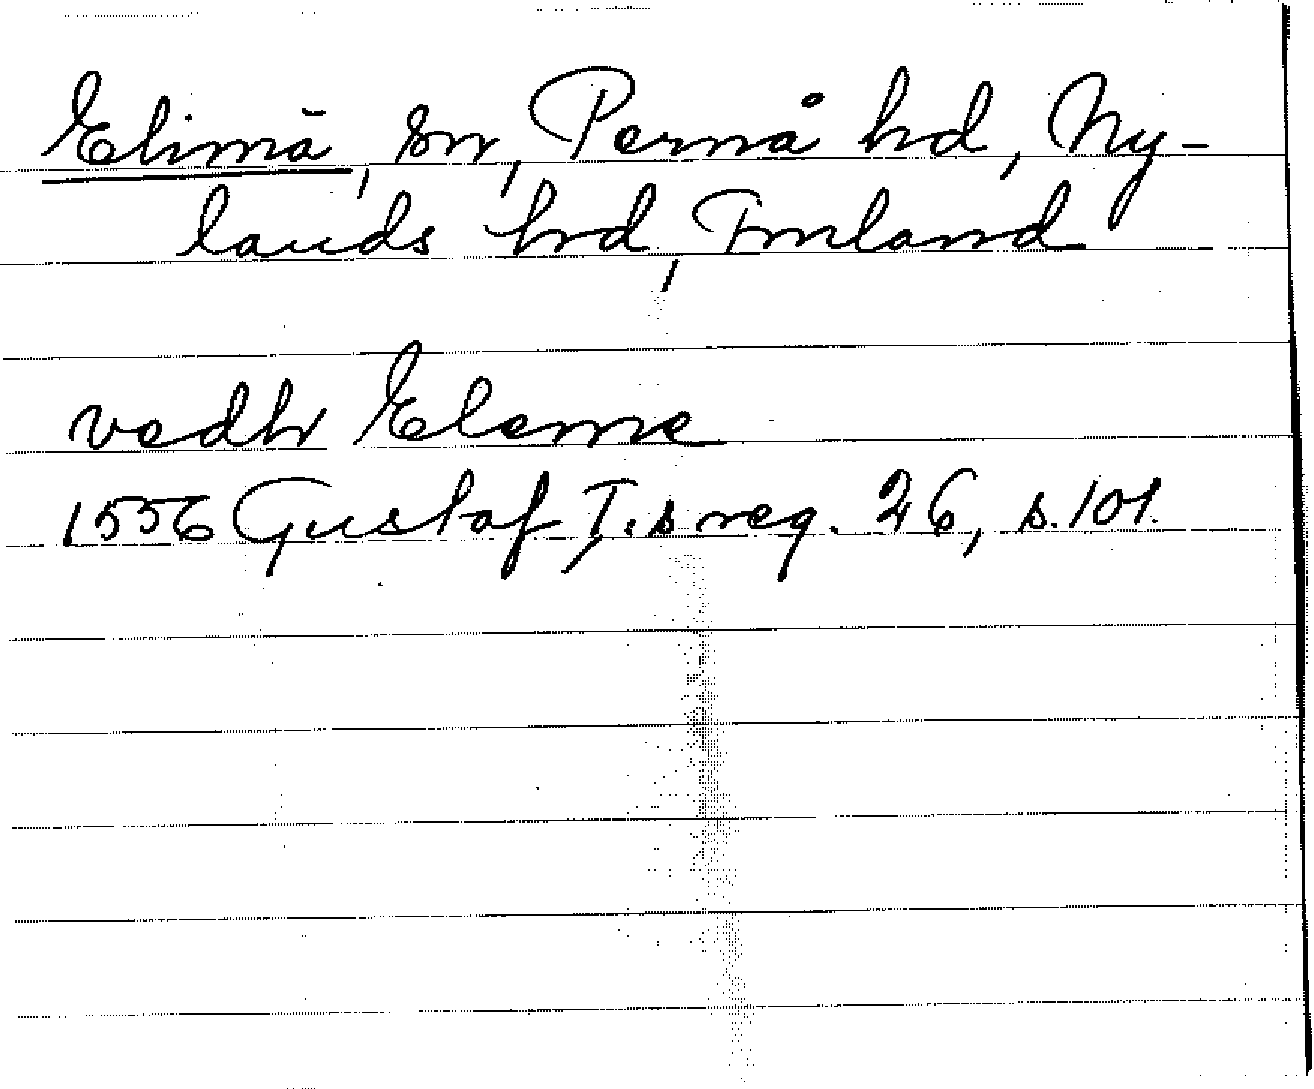 Elimä, sn, Pernå hd, Ny-
lands hrd, Finland
vedh Eleme
1556 Gustaf I.s reg. 26, s. 101.